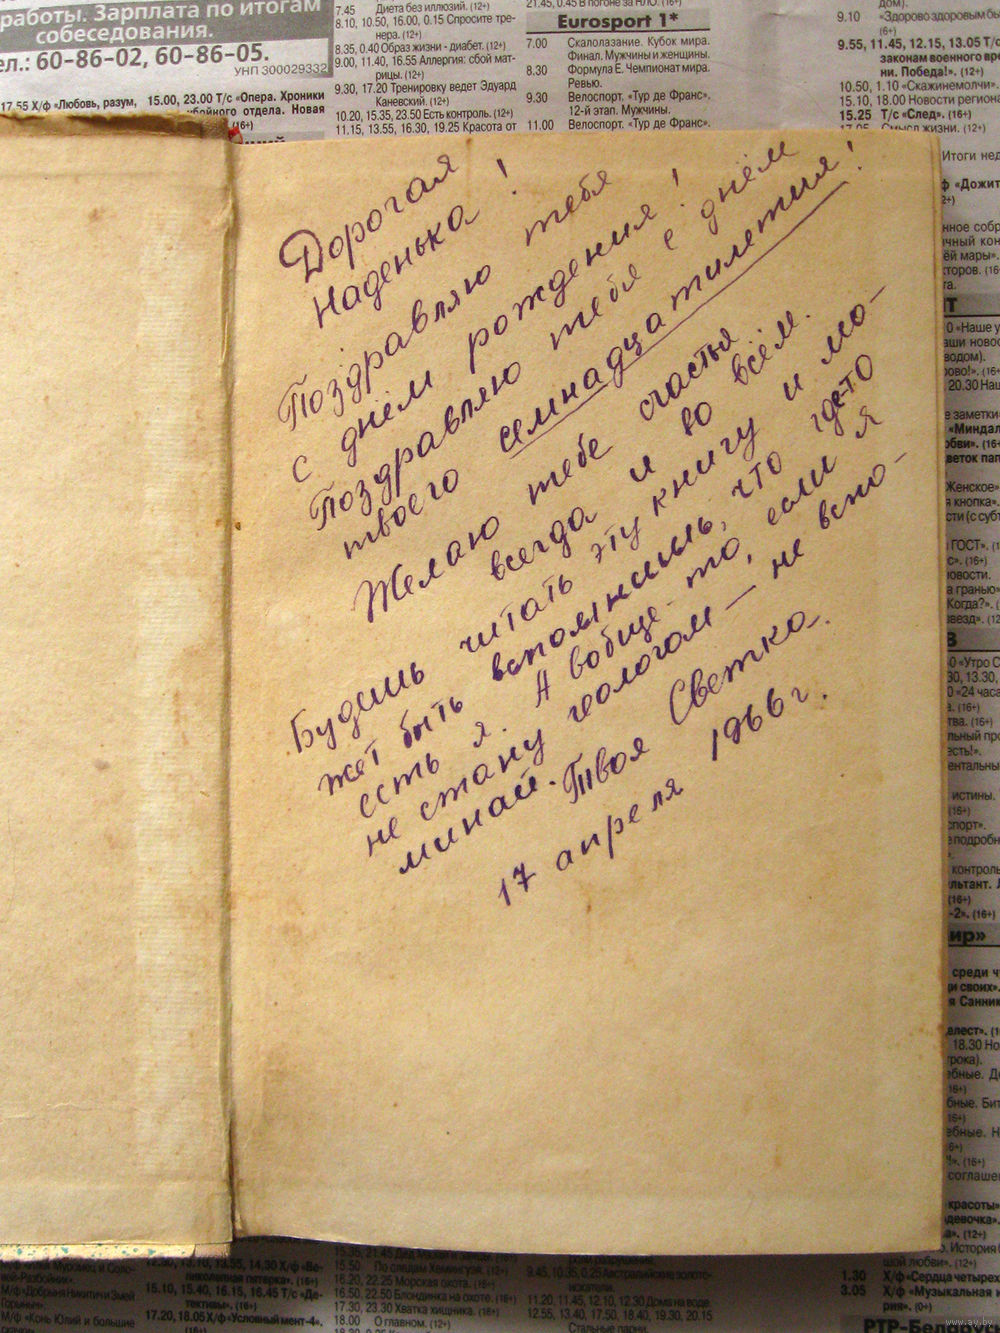 работы. Зарплата по итогам
собеседования.
ел.: 60-86-02, 60-86-05.
УНП 300029332
17.55 Х/ф «Любовь, разум,
15.00, 23.00 Т/с «Опера. Хроники
убойного отдела. Новая
(16+)
7.45 Диета без иллюзий. (12+)
8.10, 10.50, 16.00, 0.15 Спросите тре-
нера. (12+)
8.35, 0.40 Образ жизни - диабет. (12+)
9.00, 11.40, 16.55 Аллергия: сбой мат-
рицы. (12+)
9.30, 17.20 Тренировку ведет Эдуард
Каневский. (12+)
10.20, 15.35, 23.50 Есть контроль. (12+)
11.15, 13.55, 16.30, 19.25 Красота от
21.45, 0.45 В погоне за НЛО. (16+)
Eurosport 1*
7.00 Скалолазание. Кубок мира.
Финал. Мужчины и женщины.
8.30 Формула Е. Чемпионат мира.
Ревью.
9.30 Велоспорт. «Тур де Франс».
12-й этап. Мужчины.
11.00 Велоспорт. «Тур де Франс».
дом). 
9.10 «Здорово здоровым бы
(6+)
9.55, 11.45, 12.15, 13.05 Т/с
законам военного вре
ни. Победа!». (12+)
10.50, 1.10 «Скажинемолчи».
15.10, 18.00 Новости региона
15.25 Т/с «След». (16+)
17.05 Смысл жизни. (12+)
Итоги нед
Дорогая
Наденька!
Поздравляю тебя
с днём рождения!
Поздравляю тебя с днём
твоего семнадцатилетия!
Желаю тебе счастья
всегда и во всём.
Будешь читать эту книгу и мо-
жет быть вспомнишь, что где-то
есть я. А вобще-то, если я
не стану геологом – не вспо-
минай. Твоя Светка.
17 апреля 1966 г.
15.35, 21.45
15.50 По следам Хемингуэя. (12+)
16.20, 22.25 Морская охота. (16+)
16.50, 22.50 Блондинка на охоте. (16+)
17.30, 23.30 Хватка хищника. (16+)
18.00 О главном. (12+)
12.30, 13.10, 13.55, 14.30 Х/ф «Ве-
ликолепная пятерка». (16+)
15.10, 15.40, 16.15, 16.45 Т/с «Де-
тективы». (16+)
17.20, 18.05 Х/ф «Условный мент-4».
(16+)
М/ф «Добрыня Никитич и Змей
Горыныч».
М/ф «Конь Юлий и большие
9.45, 10.35, 0.25 Австралийские золото-
искатели.
11.20, 11.45, 12.10, 12.30 Дома на воде
12.55, 13.40, 17.50, 18.40, 19.30, 20.15
Стальные парни.
1.30 Х/ф «Сердца четырех
3.05 Х/ф «Музыкальная и
рия». (0+)
РТР-Беларусь
www.ay.by